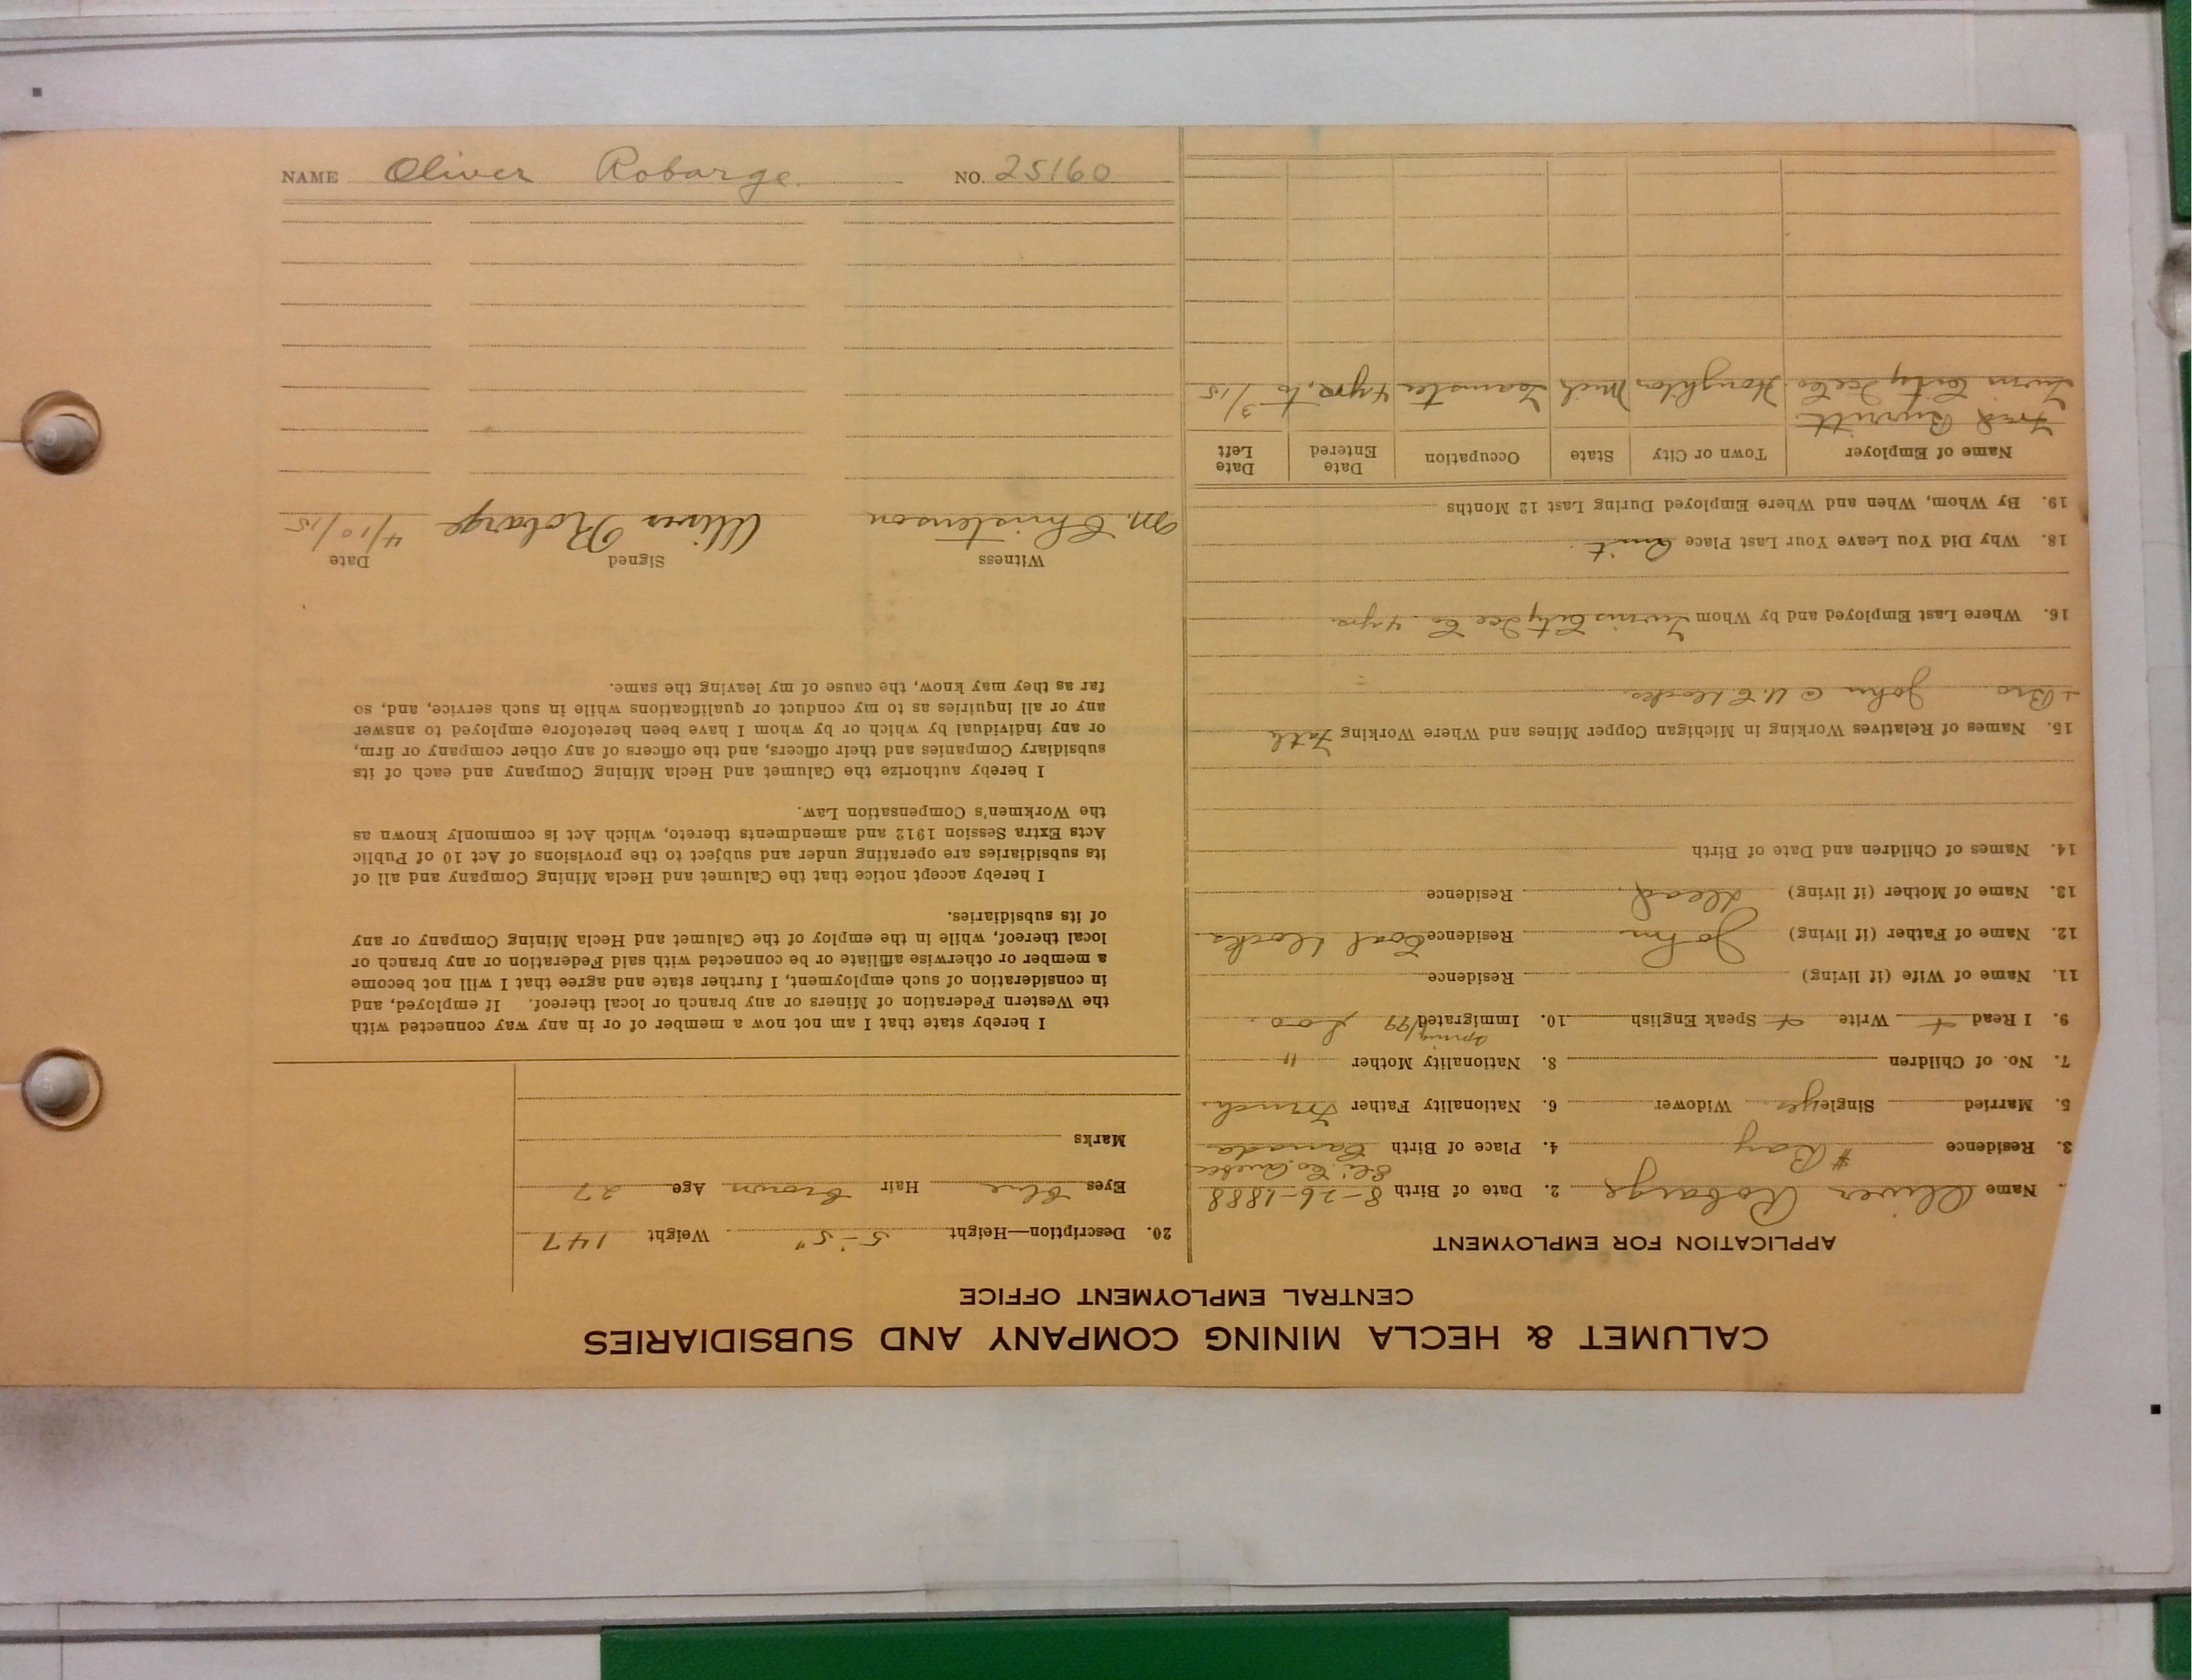 CALUMET & HECLA MINING COMPANY AND SUBSIDIARIES
CENTRAL EMPLOYMENT OFFICE
APPLICATION FOR EMPLOYMENT
Name Oliver Robarge 2. Date of Birth 8-26-1888
Co. Quebec
3. Residence # Bay 4. Place of Birth Canada
5. Married Single yes Widower 6. Nationality Father French.
7. No. of Children 8. Nationality Mother "
Spring
9. I Read + Write + Speak English 10. Immigrated /99 Soo.
11. Name of Wife (if living) Residence
12. Name of Father (if living) John Residence Coal Docks
13. Name of Mother (if living) Dead. Residence
14. Names of Children and Date of Birth
15. Names of Relatives Working in Michigan Copper Mines and Where Working Fath
+ Bro. John @ Docks.
16. Where Last Employed and by Whom Twin City Ice Co 4 yrs.
18. Why Did You Leave Your Last Place Quit.
19. By Whom, When and Where Employed During Last 12 Months
Name of Employer Town or City State Occupation Date Entered Date Left
Fred
Twin City Ice Co. Houghton Mich Teamster 4 yrs. to 3/15
20. Description—Height 5-5" Weight 147
Eyes Blue Hair Brown Age 27
Marks
I hereby state that I am not now a member of or in any way connected with
the Western Federation of Miners or any branch or local thereof. If employed, and
in consideration of such employment, I further state and agree that I will not become
a member or otherwise affiliate or be connected with said Federation or any branch or
local thereof, while in the employ of the Calumet and Hecla Mining Company or any
of its subsidiaries.
I hereby accept notice that the Calumet and Hecla Mining Company and all of
its subsidiaries are operating under and subject to the provisions of Act 10 of Public
Acts Extra Session 1912 and amendments thereto, which Act is commonly known as
the Workmen's Compensation Law.
I hereby authorize the Calumet and Hecla Mining Company and each of its
subsidiary Companies and their officers, and the officers of any other company or firm,
or any individual by which or by whom I have been heretofore employed to answer
any or all inquiries as to my conduct or qualifications while in such service, and, so
far as they may know, the cause of my leaving the same.
Witness Signed Date
M. Christenson Oliver Robarge 4/10/15
NAME Oliver Robarge. NO. 25160